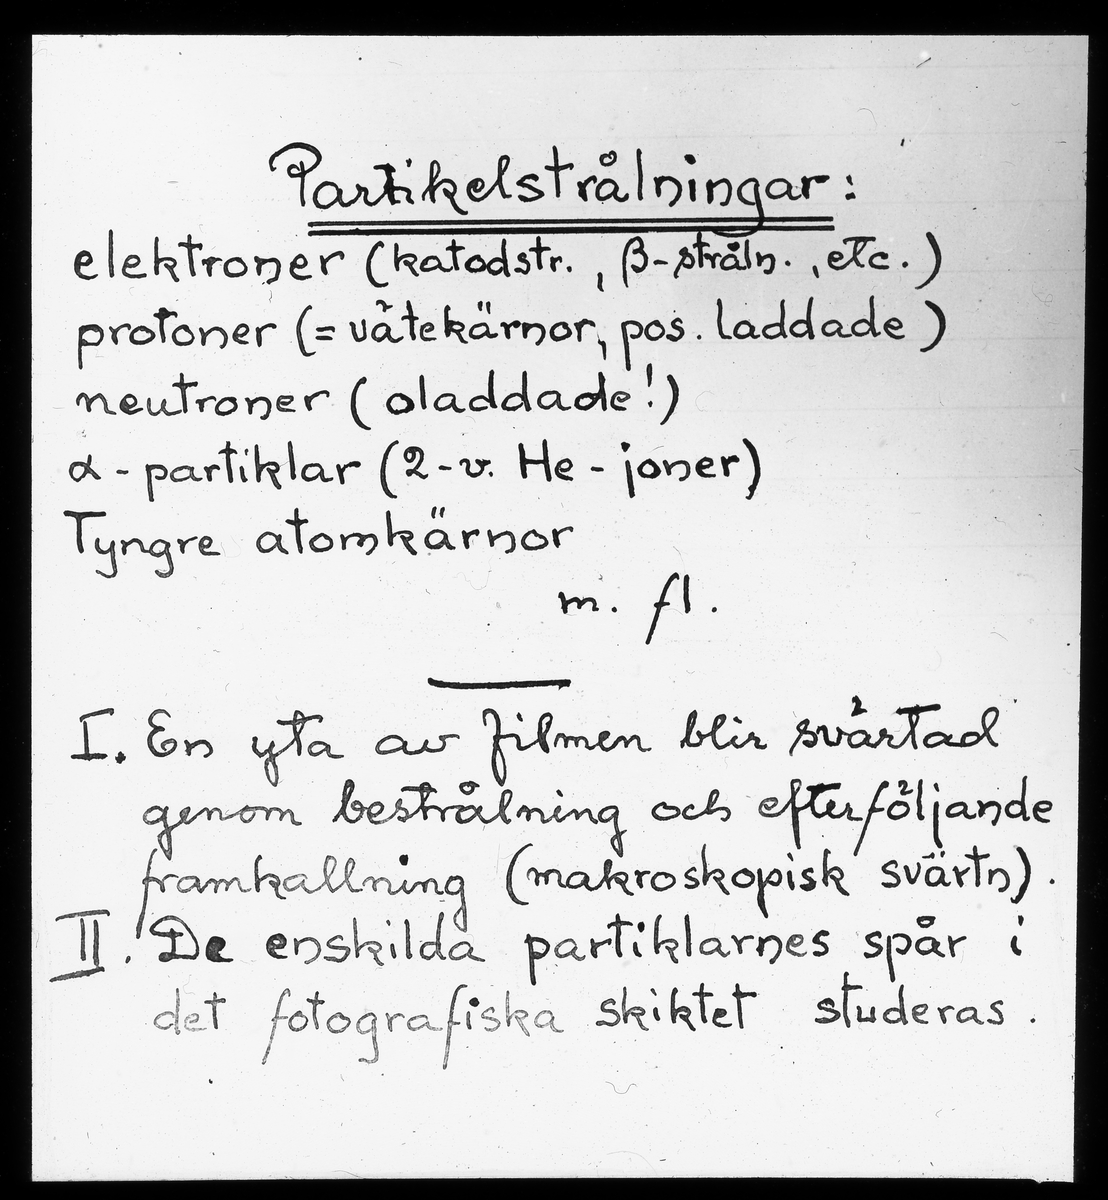 Partikelstrålningar:
elektroner (katodstr., β-stråln., etc.)
protoner (= vätekärnor, pos. laddade)
neutroner (oladdade!)
α-partiklar (2-v. He-joner)
Tyngre atomkärnor
m. fl.
I. En yta av filmen blir svärtad
genom bestrålning och efterföljande
framkallning (makroskopisk svärtn).
II. De enskilda partiklarnes spår i
det fotografiska skiktet studeras.